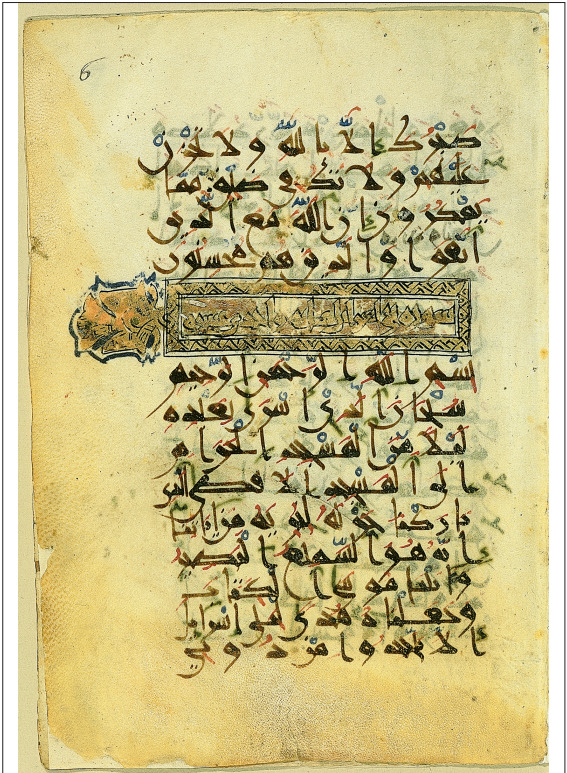 6
صبرك الا بالله ولا تحزن
عليهم ولا تك في ضيق مما
يمكرون ان الله مع الذين
اتقوا والذين هم محسنون
بسم الله الرحمن الرحيم
سبحان الذي اسرى بعبده
ليلا من المسجد الحرام
الى المسجد الاقصا الذي
باركنا حوله لنريه من اياتنا
انه هو السميع البصير
واتينا موسى الكتاب
وجعلناه هدى لبني اسرايل
الا تتخذوا من دوني